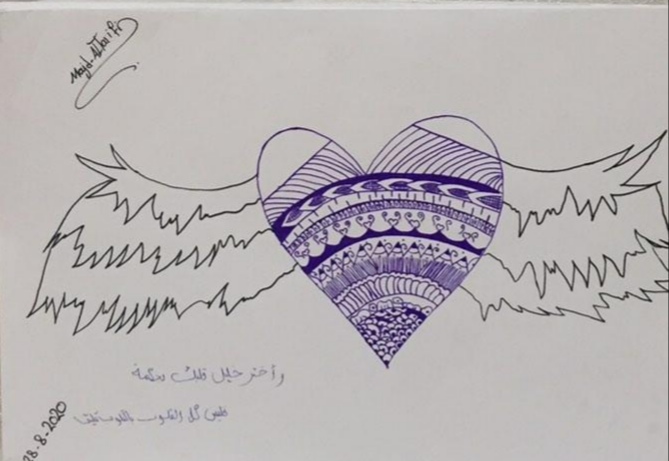 Majd-AlTaifi
واختر خليل قلبك بحكمة
فليس كل القلوب بالقلوب تليق
28-8-2020